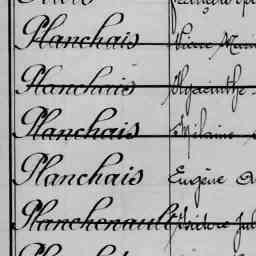 Planchais Pierre
Planchais Hyacinthe
Planchais Mélaine
Planchais Eugène
Planchenault Isidore Jul